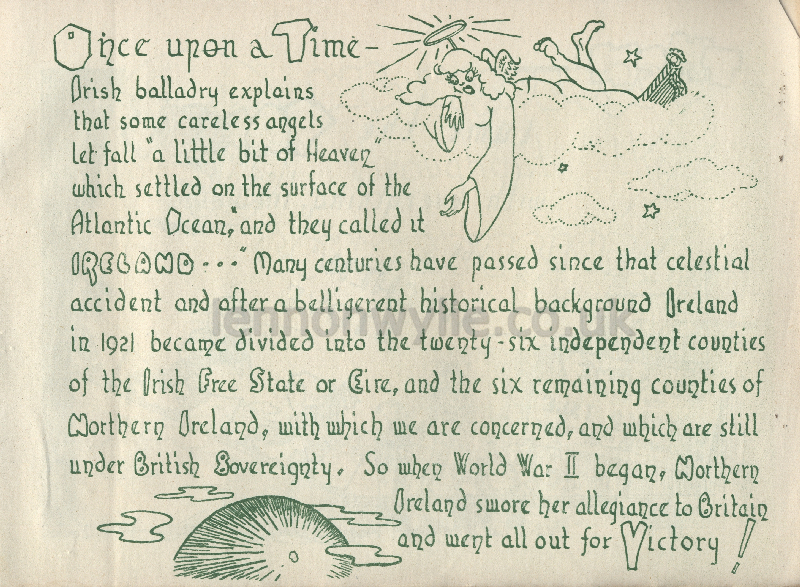 Once upon a Time-
Irish balladry explains
that some careless angels
let fall "a little bit of Heaven"
which settled on the surface of the
Atlantic Ocean, "and they called it
IRELAND..." Many centuries have passed since that celestial
accident and after a belligerent historical background Ireland
in 1921 became divided into the twenty-six independent counties
of the Irish Free State or Eire, and the six remaining counties of
Northern Ireland, with which we are concerned, and which are still
under British Sovereignty. So when World War II began, Northern
Ireland swore her allegiance to Britain
and went all out for Victory!
lennonwylie.co.uk